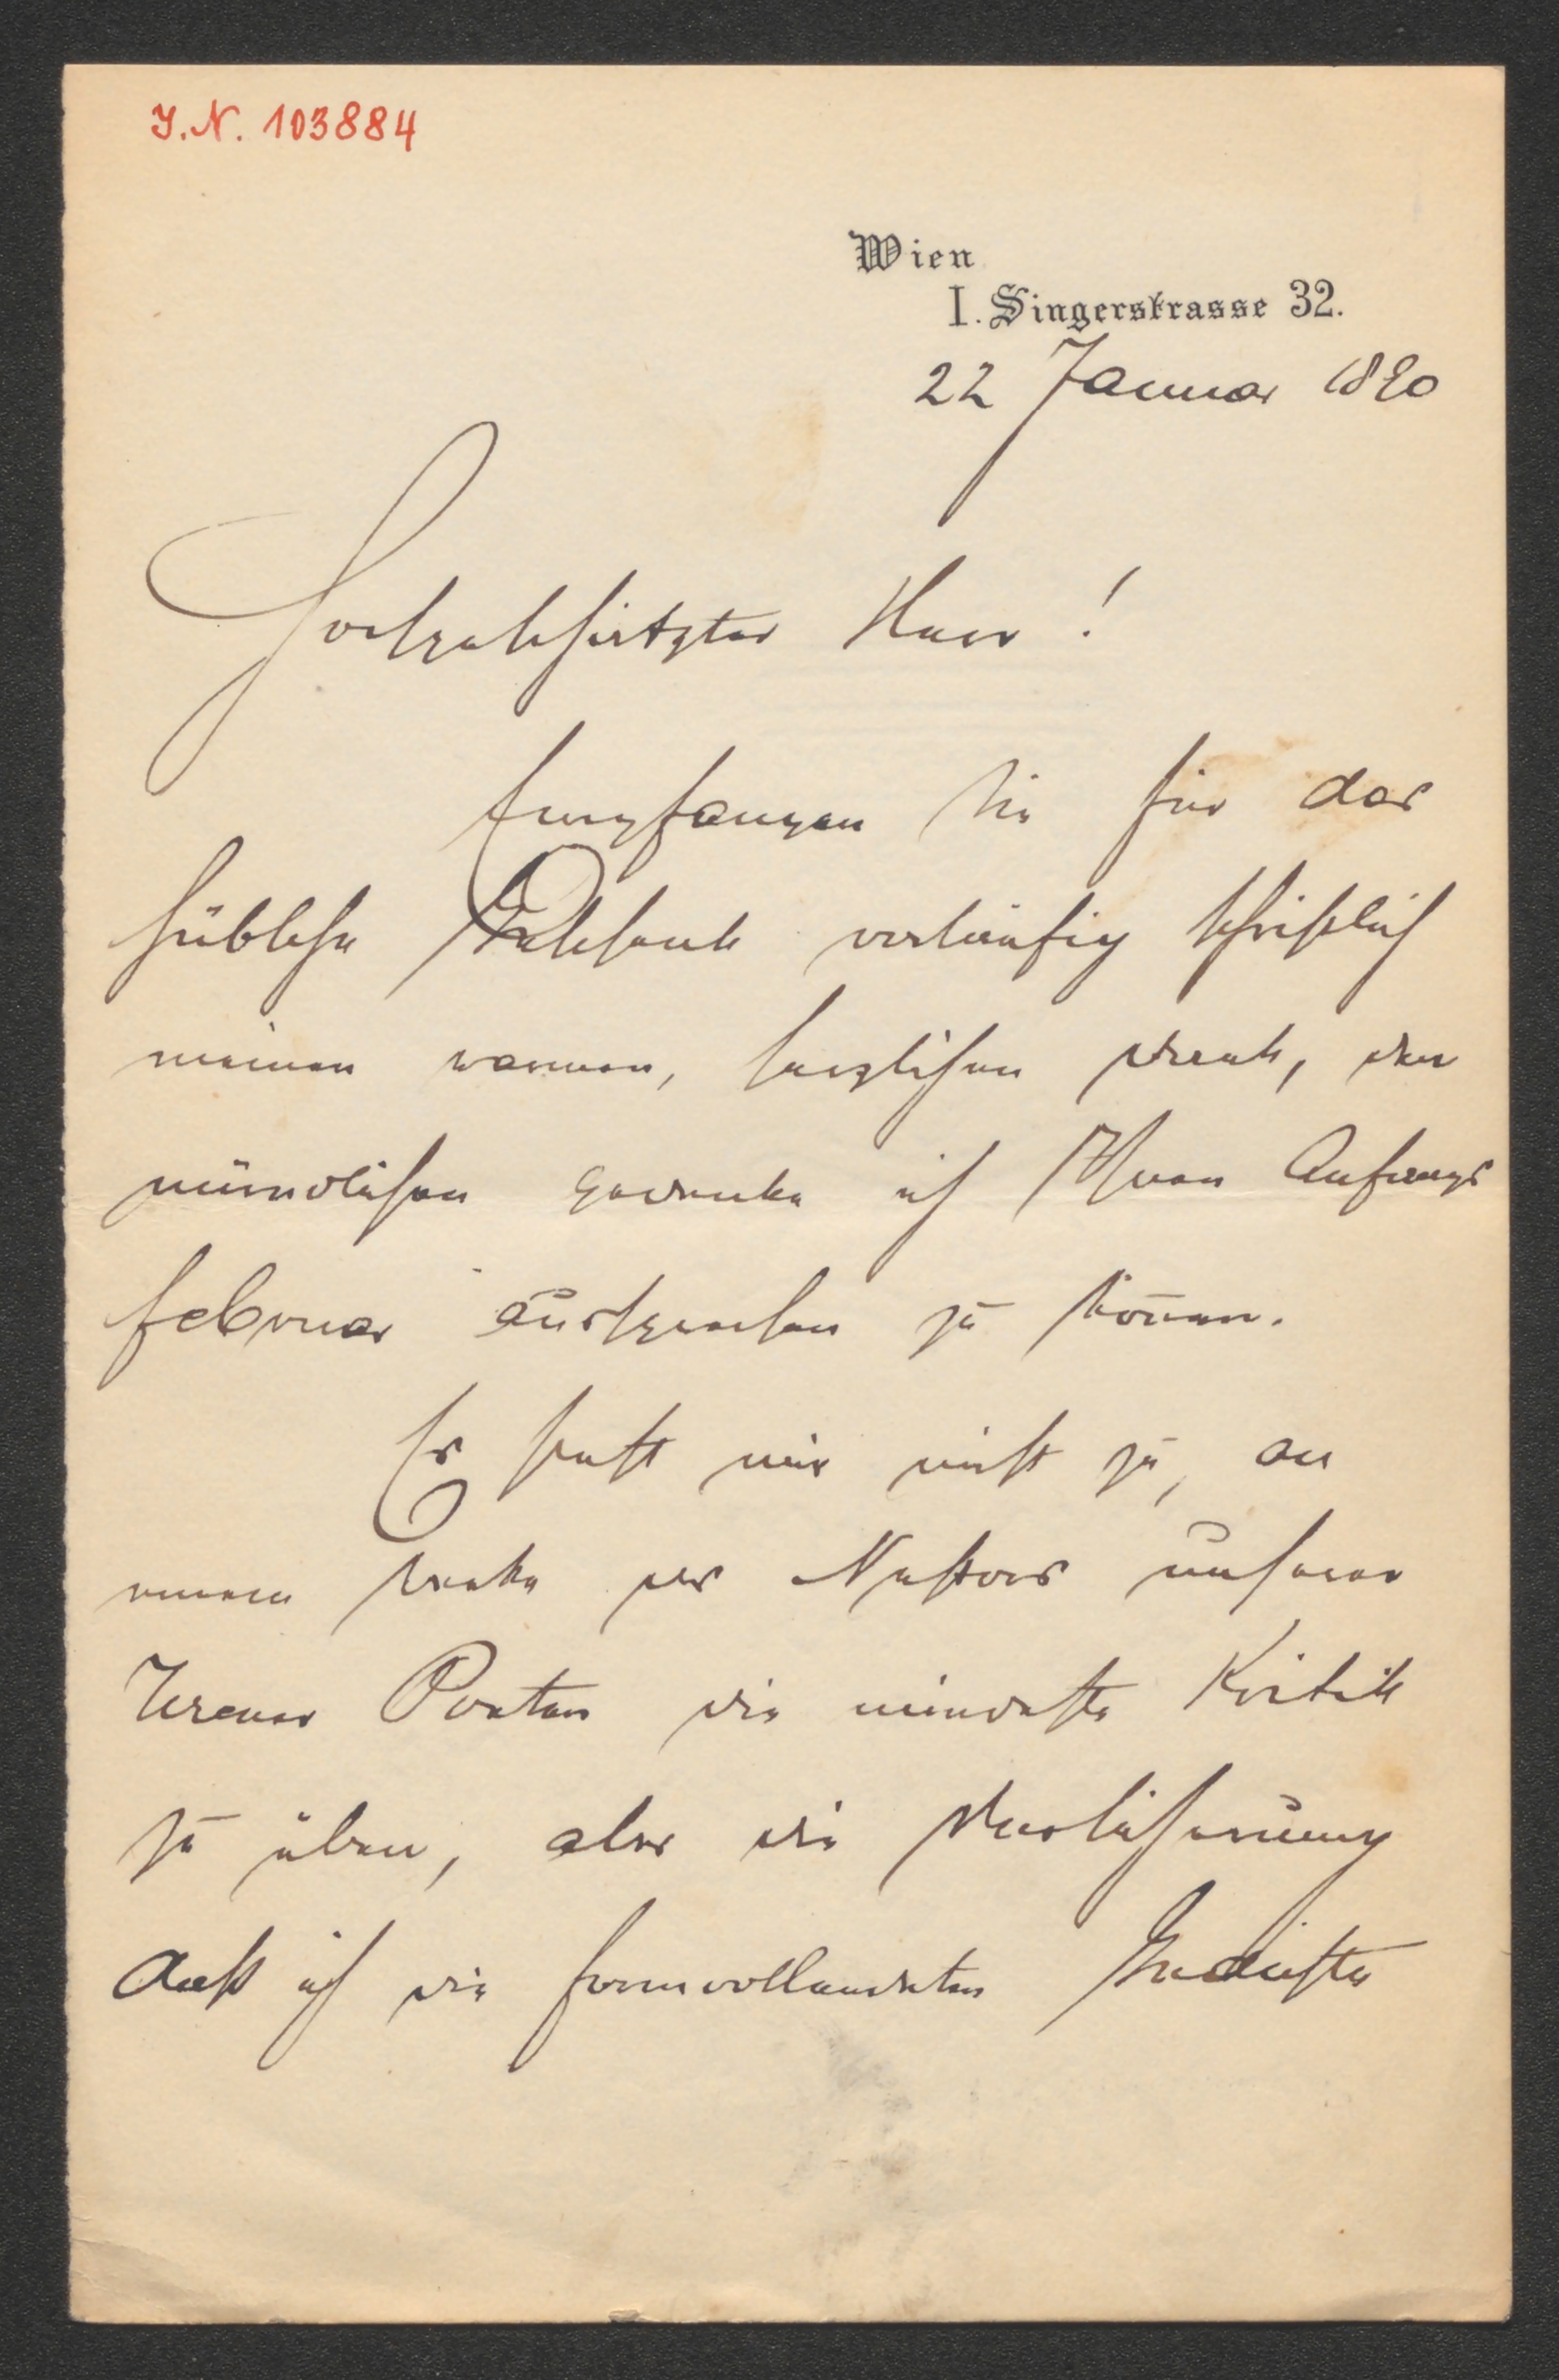 I.N. 103884
Wien
I. Singerstrasse 32.
22 Januar 1890
Hochgeschätzter Herr!
Empfangen Sie für das
hübsche vorläufig schriftlich
meinen warmen, herzlichen Dank, den
mündlichen gedenke ich Ihnen Anfangs
Februar aussprechen zu können.
Es steht mir nicht zu, an
einem Werke des Nestors unserer
Wiener Poeten die mindeste Kritik
zu üben, aber die Versicherung
daß ich die formvollendeten Gedichte